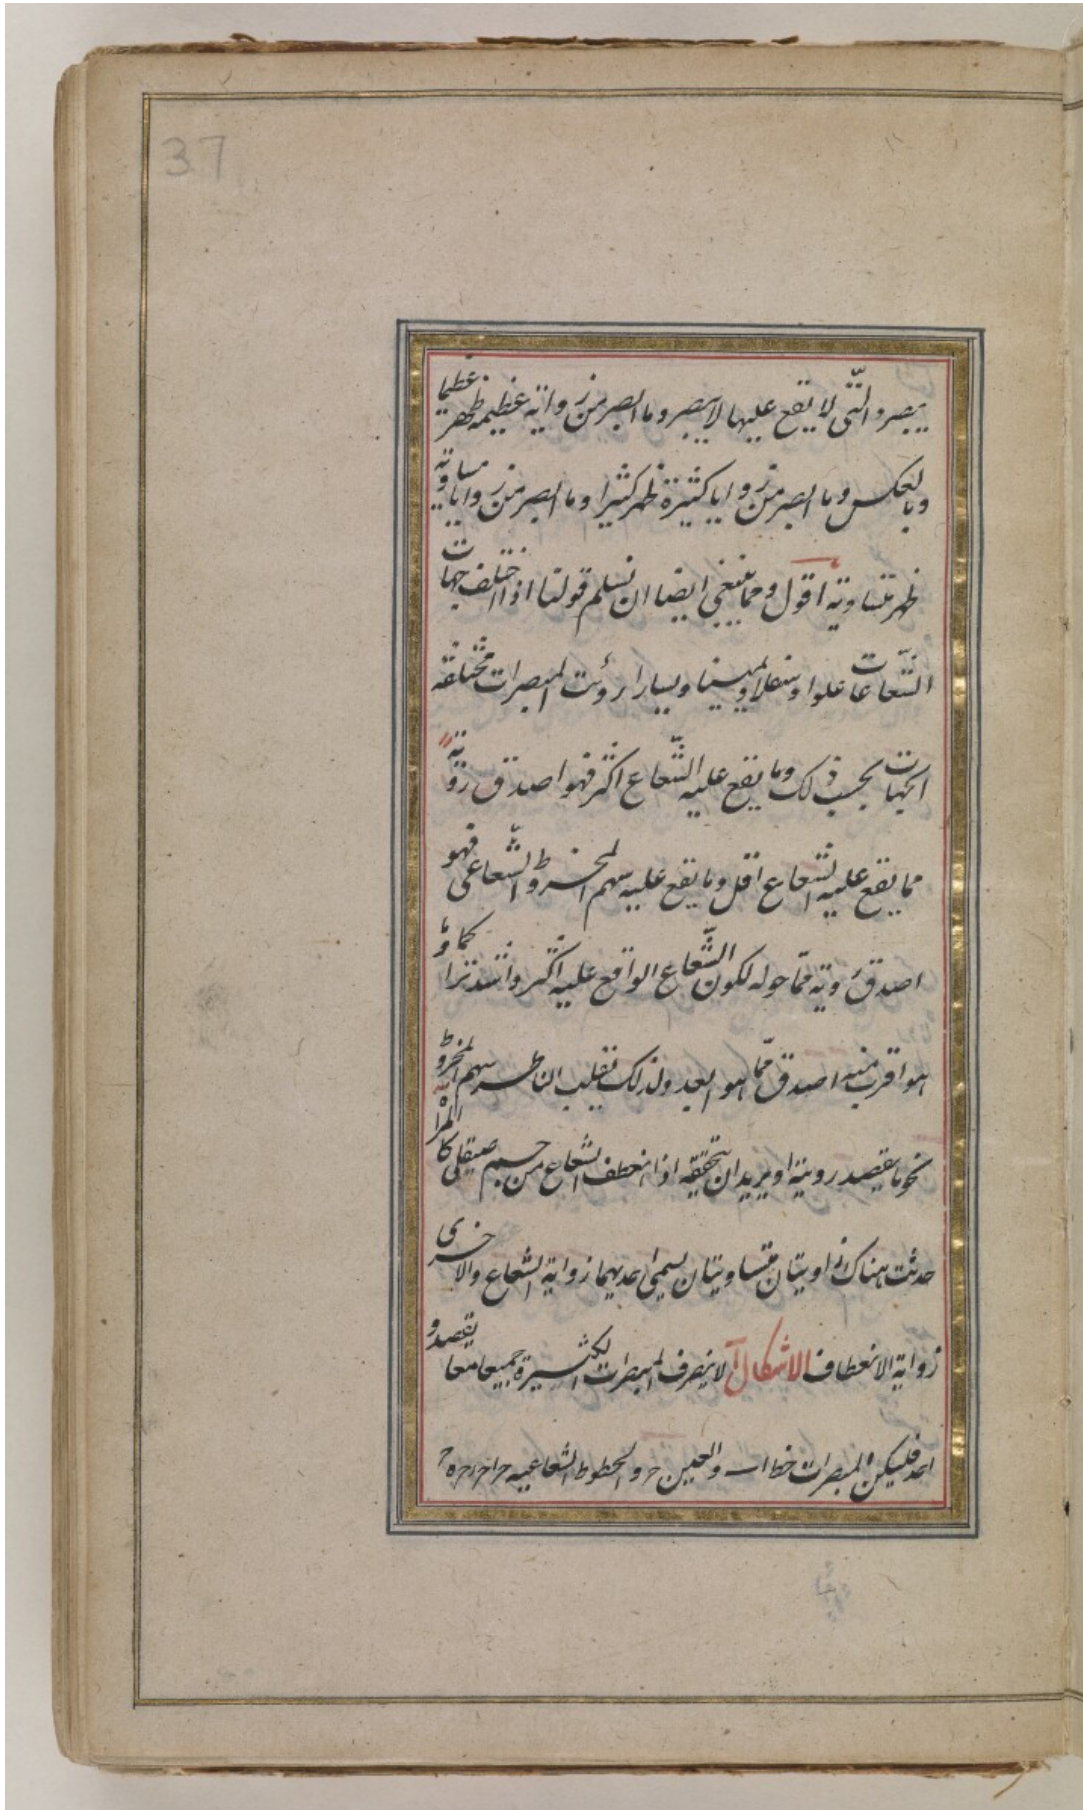 37
يبصر والتى لا يقع عليها لا يبصر وما ابصر من زواية عظيمة ظهر عظيما
وبالعكس وما ابصر من زوايا كثيرة ظهر كثيرا وما ابصر من زوايا مساوية
ظهر متساوية اقول ومما ينبغى ايضا ان نسلم قولنا اذا اختلف جهات
الشعاعات علوا وسفلا ويمينا ويسارا رؤيت المبصرات مختلفة
الجهات بحسب ذلك وما يقع عليه الشعاع اكثر فهو اصدق رؤية
مما يقع عليه الشعاع اقل وما يقع عليه سهم المخروط الشعاعى فهو
اصدق رؤية مما حوله لكون الشعاع الواقع عليه اكثر واشد تراكما و
هو اقرب منه اصدق مما هو ابعد ولذلك تقليب الناظر سهم المخروط
نحو ما يقصد رويته او يريد ان يتحققه اذا انعطف الشعاع من جسم صيقلى كالمراة
حدثت هناك زاويتان متساويتان يسمى احديهما زواية الشعاع والاخرى
زواية الانعطاف الاشكال آ لا ينصرف المبصرات الكثيرة جميعا معا يقصد و
احد فليكن المبصرات خطا اب والعين ح والخطوط الشعاعية